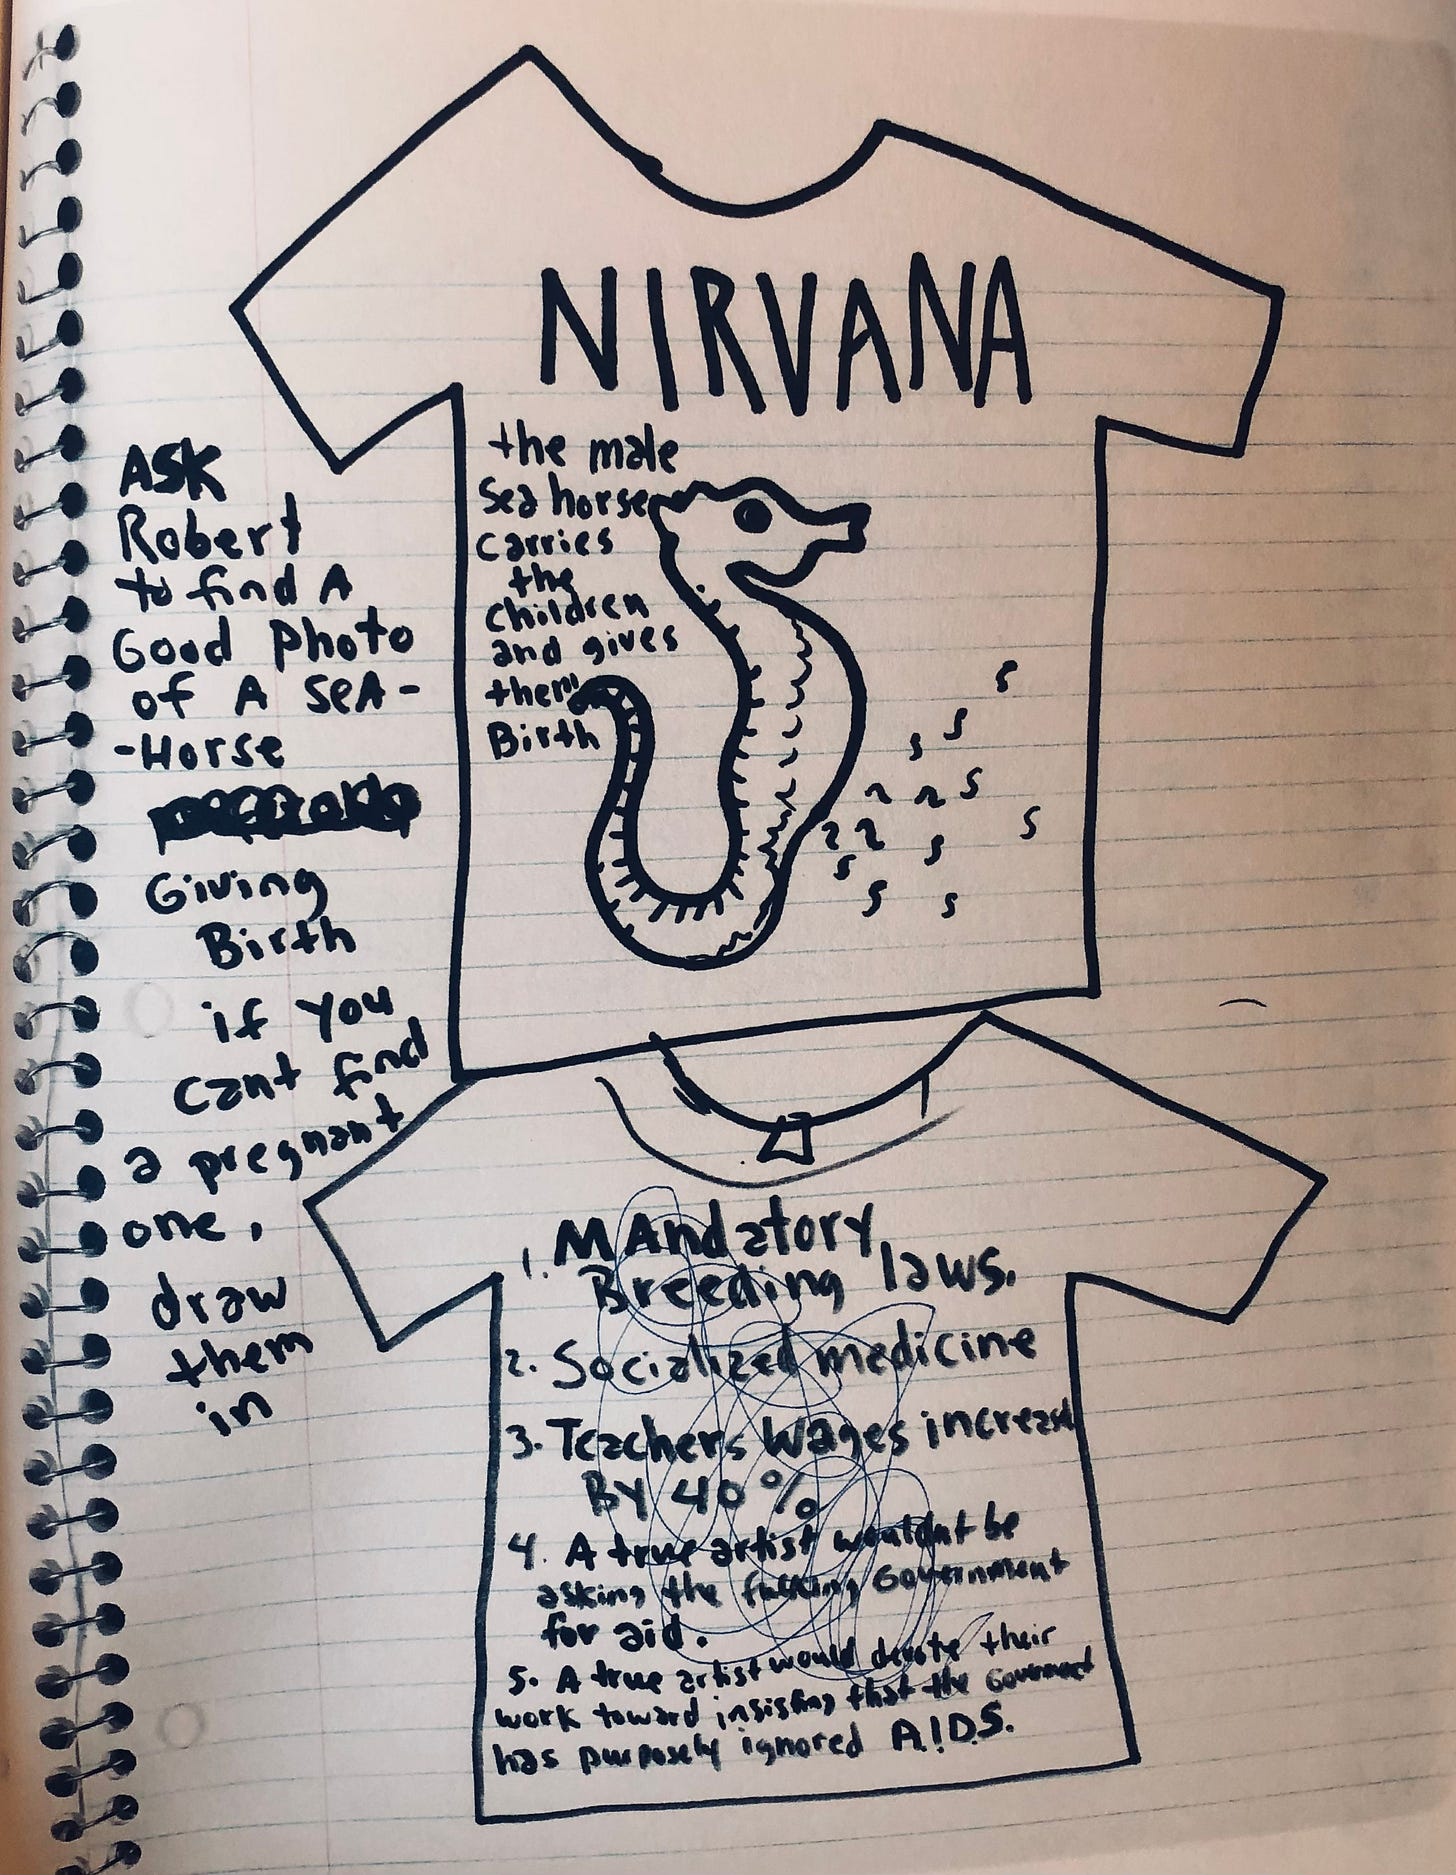 NIRVANA
the male
sea horse
carries
the
children
and gives
them
Birth
ASK
Robert
to find A
Good Photo
of A SeA-
-Horse
Giving
Birth
if you
cant find
a pregnant
one,
draw
them
in
1. MAndatory
Breeding laws.
2. Socialized medicine
3. Teachers wages increase
By 40%
4. A true artist wouldnt be
asking the fucking Government
for aid.
5. A true artist would devote their
work toward insisting that the Goverment
has purposely ignored A.I.D.S.